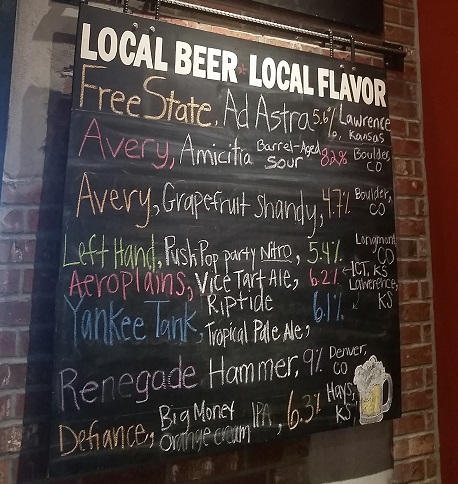 LOCAL BEER * LOCAL FLAVOR
Free State, Ad Astra 5.6% Lawrence, Kansas
Avery, Amicitia Barrel-Aged Sour 8.2% Boulder, CO
Avery, Grapefruit Shandy, 4.7% Boulder, CO
Left Hand, Push Pop party Nitro, 5.4% Longmont, CO
Aeroplains, Vice Tart Ale, 6.2% ← ICT, KS
Yankee Tank, Riptide Tropical Pale Ale, 6.1% Lawrence, KS
Renegade Hammer, 9% Denver, CO
Defiance, Big Money Orange cream IPA, 6.3% Hays, KS